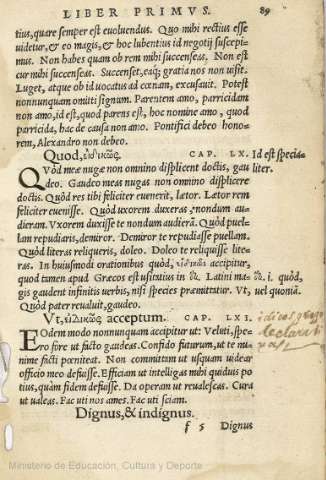 LIBER PRIMVS. 89
tius, quare semper est euoluendus. Quo mihi rectius esse
uidetur, & eo magis, & hoc lubentius id negotij suscepi-
mus. Non habes quam ob rem mihi succenseas. Non est
cur mihi succenseas. Succenset, eaq; gratia nos non uisit.
Luget, atque ob id uocatus ad cœnam, excusauit. Potest
nonnunquam omitti signum. Parentem amo, parricidam
non amo, id est, quod parens est, hoc nomine amo, quod
parricida, hac de causa non amo. Pontifici debeo hono-
rem, Alexandro non debeo.
Quod, εἰδικῶς. CAP. LX. Id est specia-
liter.
QVòd meæ nugæ non omnino displicent doctis, gau
deo. Gaudeo meas nugas non omnino displicere
doctis. Quòd res tibi feliciter euenerit, lætor. Lætor rem
feliciter euenisse. Quòd uxorem duxeras, nondum au-
dieram. Vxorem duxisse te nondum audierā. Quòd puel-
lam repudiaris, demiror. Demiror te repudiasse puellam.
Quòd literas reliqueris, doleo. Doleo te reliquisse lite
ras. In huiusmodi orationibus quòd, εἰδικῶς accipitur,
quod tamen apud Græcos est usitatius in ὅτι. Latini ma- ὅτι. i. quòd,
gis gaudent infinitis uerbis, nisi species præmittitur. Vt, uel quoniā.
Quòd pater reualuit, gaudeo.
Vt, εἰδικῶς acceptum. CAP. LXI.
EOdem modo nonnunquam accipitur ut: Veluti, spe-
ro fore ut facto gaudeas. Confido futurum, ut te mi-
nime facti pœniteat. Non committam ut usquam uidear
officio meo defuisse. Efficiam ut intelligas mihi quiduis po
tius, quàm fidem defuisse. Da operam ut reualescas. Cura
ut ualeas. Fac uti nos ames. Fac uti sciam.
Dignus, & indignus.
f 5 Dignus
Ministerio de Educación, Cultura y Deporte